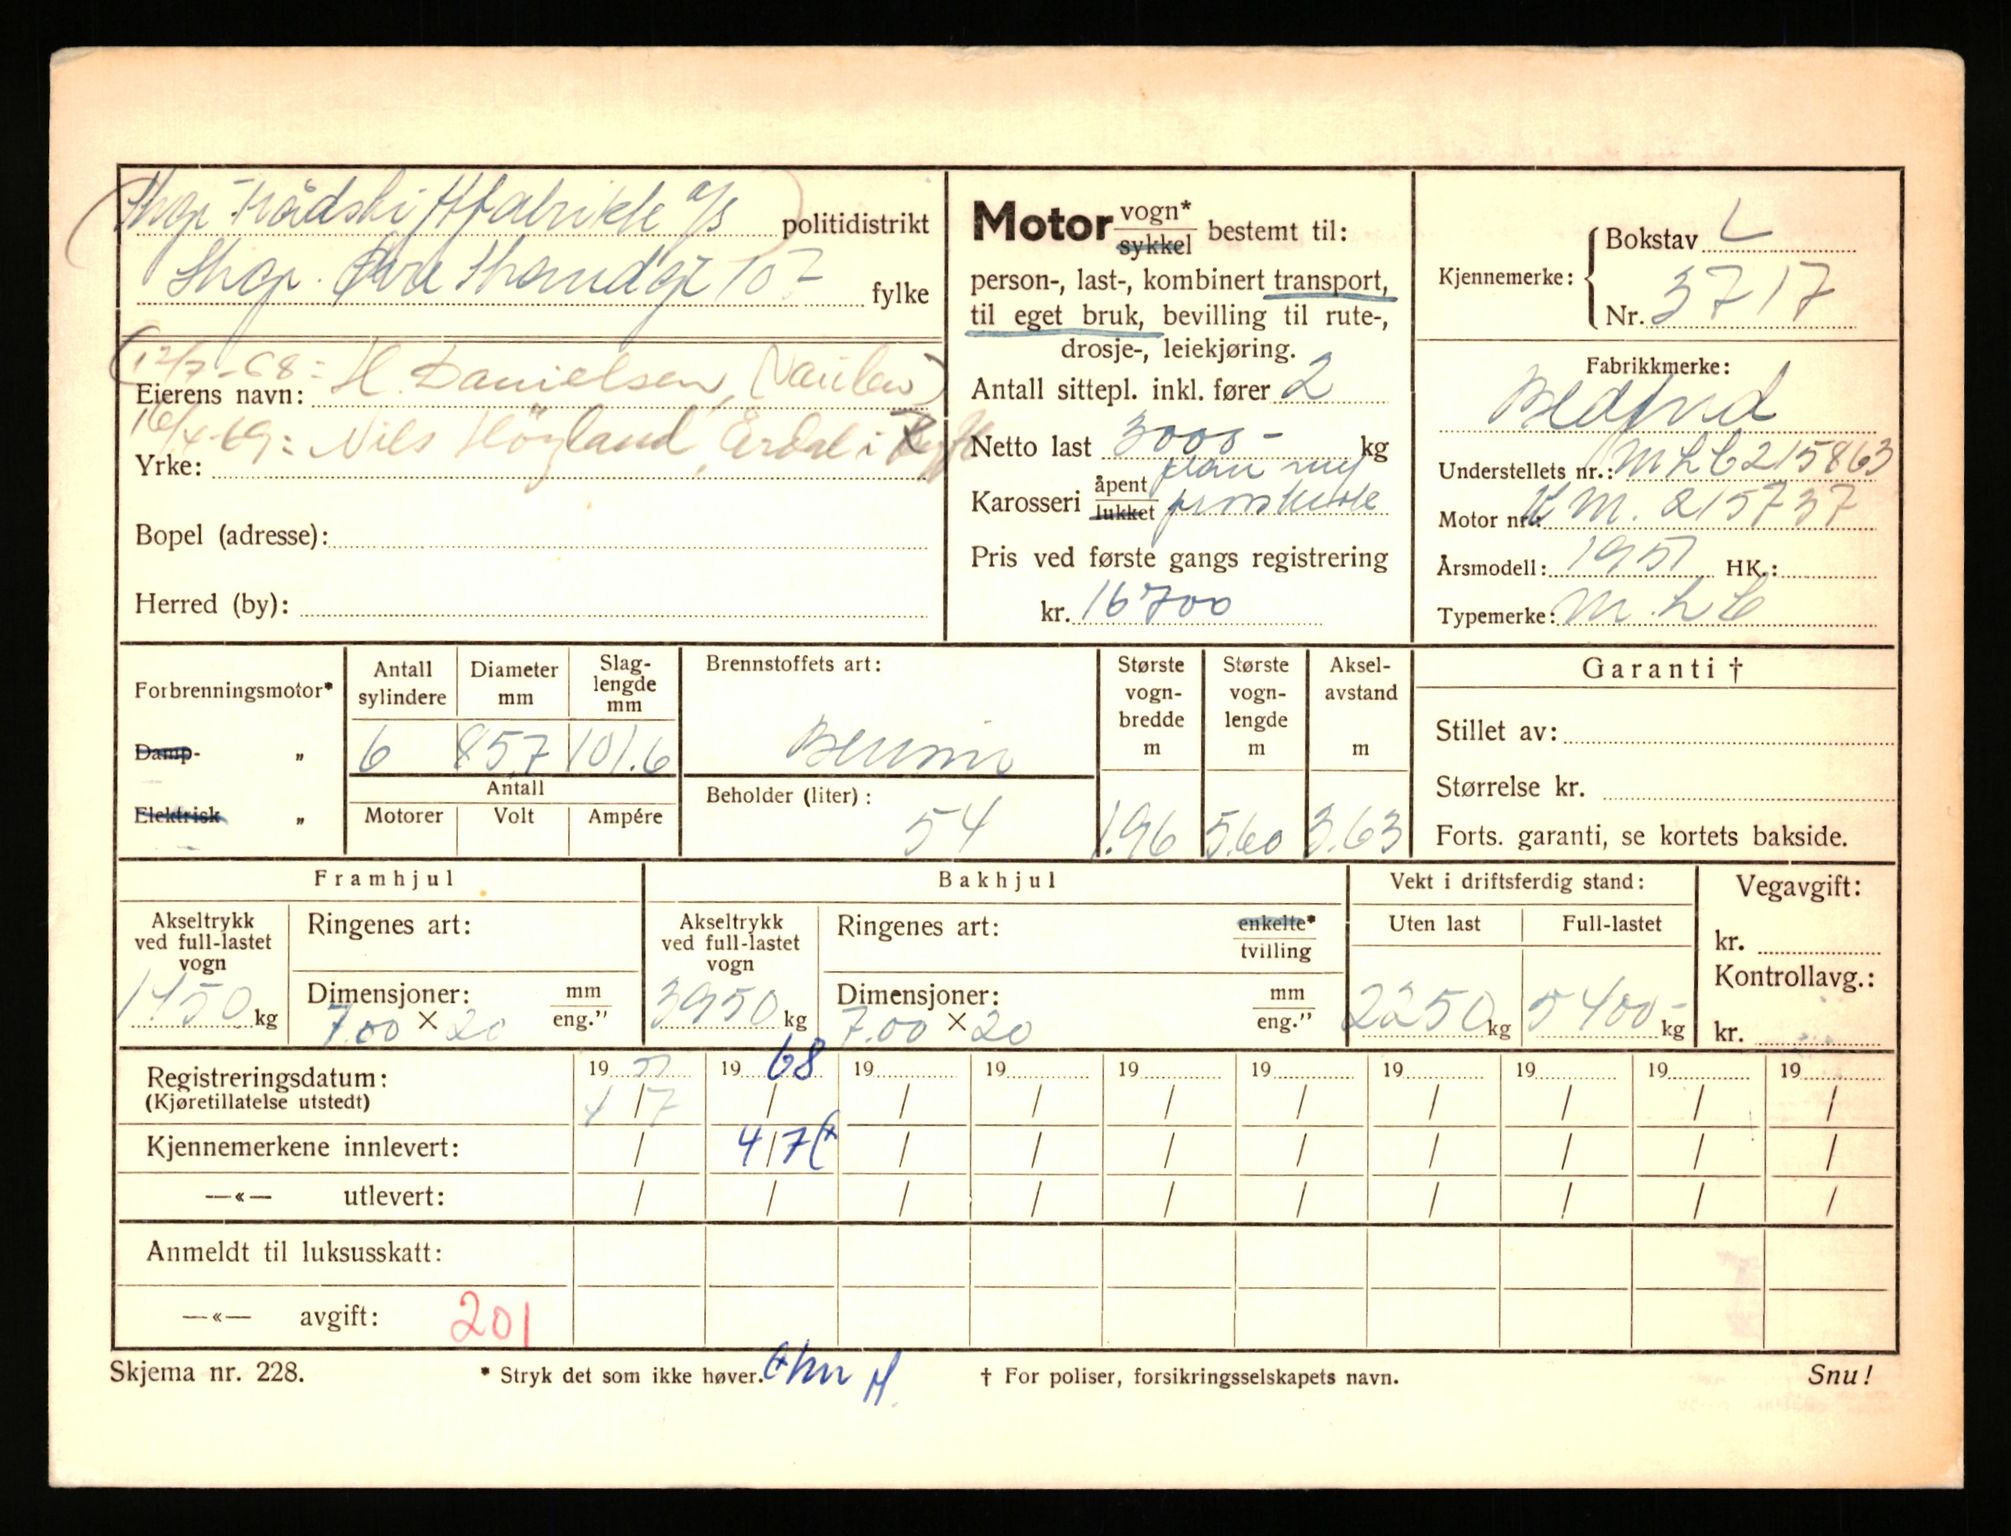 politidistrikt
fylke
12/7-68: H. Danielsen,
Eierens navn:
16/4-69: Nils Høyland, Årdal i
Yrke:
Bopel (adresse):
Herred (by):
Motor vogn*
sykkel bestemt til:
person-, last-, kombinert transport,
til eget bruk, bevilling til rute-,
drosje-, leiekjøring.
Antall sittepl. inkl. fører 2
Netto last 3000- kg
Karosseri åpent
lukket
Pris ved første gangs registrering
kr. 16700
Kjennemerke: Bokstav L
Nr. 3717
Fabrikkmerke:
Bedford
Understellets nr.: MLC 215863
Motor nr.: 215737
Årsmodell: 1951 HK.:
Typemerke: MLC
Forbrenningsmotor*
Damp- „
Elektrisk „
Antall sylindere 6
Diameter mm 85,7
Slag-lengde mm 101.6
Antall
Motorer Volt Ampére
Brennstoffets art:
Bensin
Beholder (liter):
54
Største vogn-bredde m 1.96
Største vogn-lengde m 5.60
Aksel-avstand m 3.63
Garanti †
Stillet av:
Størrelse kr.
Forts. garanti, se kortets bakside.
Framhjul
Akseltrykk ved full-lastet vogn
1450 kg
Ringenes art:
Dimensjoner: mm
7.00 × 20 eng."
Bakhjul
Akseltrykk ved full-lastet vogn
3950 kg
Ringenes art: enkelte*
tvilling
Dimensjoner: mm
7.00 × 20 eng."
Vekt i driftsferdig stand:
Uten last Full-lastet
2250 kg 5400- kg
Vegavgift:
kr.
Kontrollavg.:
kr.
Registreringsdatum: 19 51 19 68 19 19 19 19 19 19 19 19
(Kjøretillatelse utstedt) 4/7 / / / / / / / / /
Kjennemerkene innlevert: / 4/7 / / / / / / / /
—«— utlevert: / / / / / / / / / /
Anmeldt til luksusskatt:
—«— avgift: 201
Skjema nr. 228. * Stryk det som ikke høver. † For poliser, forsikringsselskapets navn. Snu!